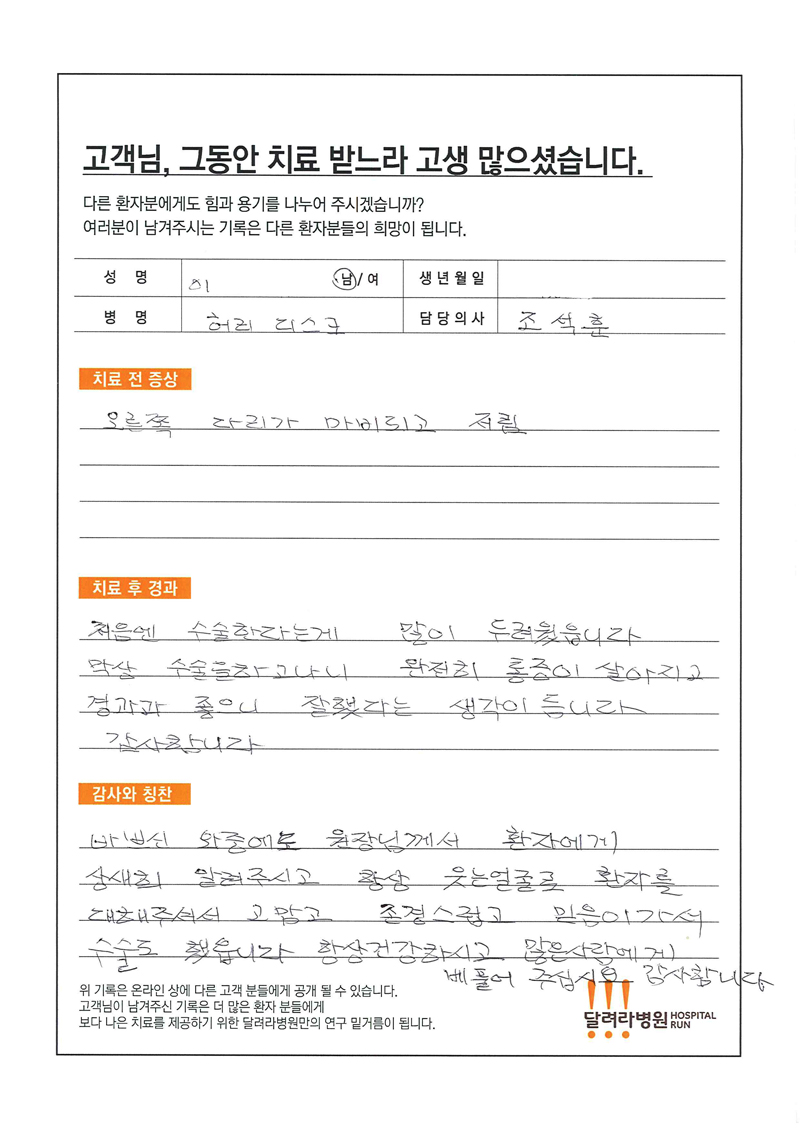 고객님, 그동안 치료 받느라 고생 많으셨습니다.
다른 환자분에게도 힘과 용기를 나누어 주시겠습니까?
여러분이 남겨주시는 기록은 다른 환자분들의 희망이 됩니다.
성 명 이 남/여 생년월일
병 명 허리 디스크 담당의사 조석훈
치료 전 증상
오른쪽 다리가 마비되고 저림
치료 후 경과
처음엔 수술한다는게 많이 두려웠읍니다
막상 수술을하고나니 완전히 통증이 살아지고
경과과 좋으니 잘했다는 생각이 듭니다
감사합니다
감사와 칭찬
바쁘신 와중에도 원장님께서 환자에게
상세희 알려주시고 항상 웃는얼굴로 환자를
대해주셔서 고맙고 존경스럽고 믿음이가서
수술도 했읍니다 항상건강하시고 많은사람에게
베풀어 주십시요 감사합니다
위 기록은 온라인 상에 다른 고객 분들에게 공개 될 수 있습니다.
고객님이 남겨주신 기록은 더 많은 환자 분들에게
보다 나은 치료를 제공하기 위한 달려라병원만의 연구 밑거름이 됩니다.
달려라병원 HOSPITAL RUN